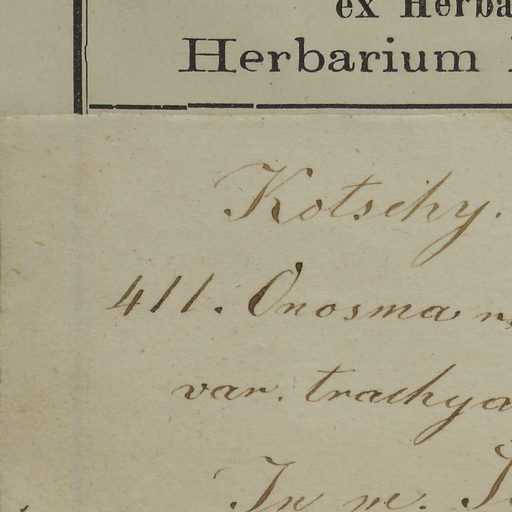 ex Herba
Herbarium
Kotschy.
411. Onosma
var. trachya
In m.